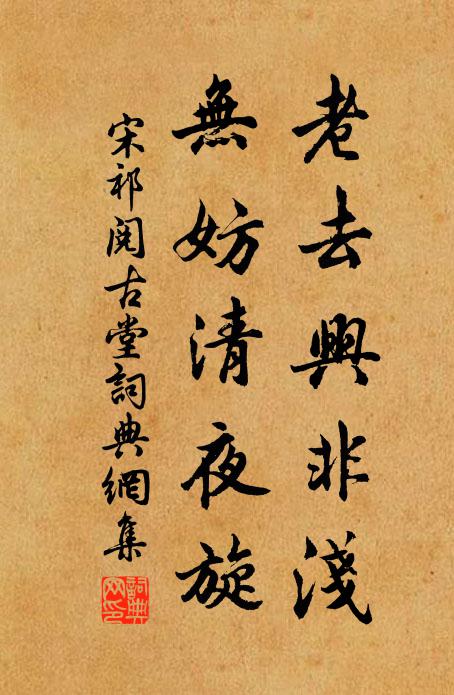 老去興非淺
無妨清夜旋
宋祁閱古堂詞典網集
詞典网印